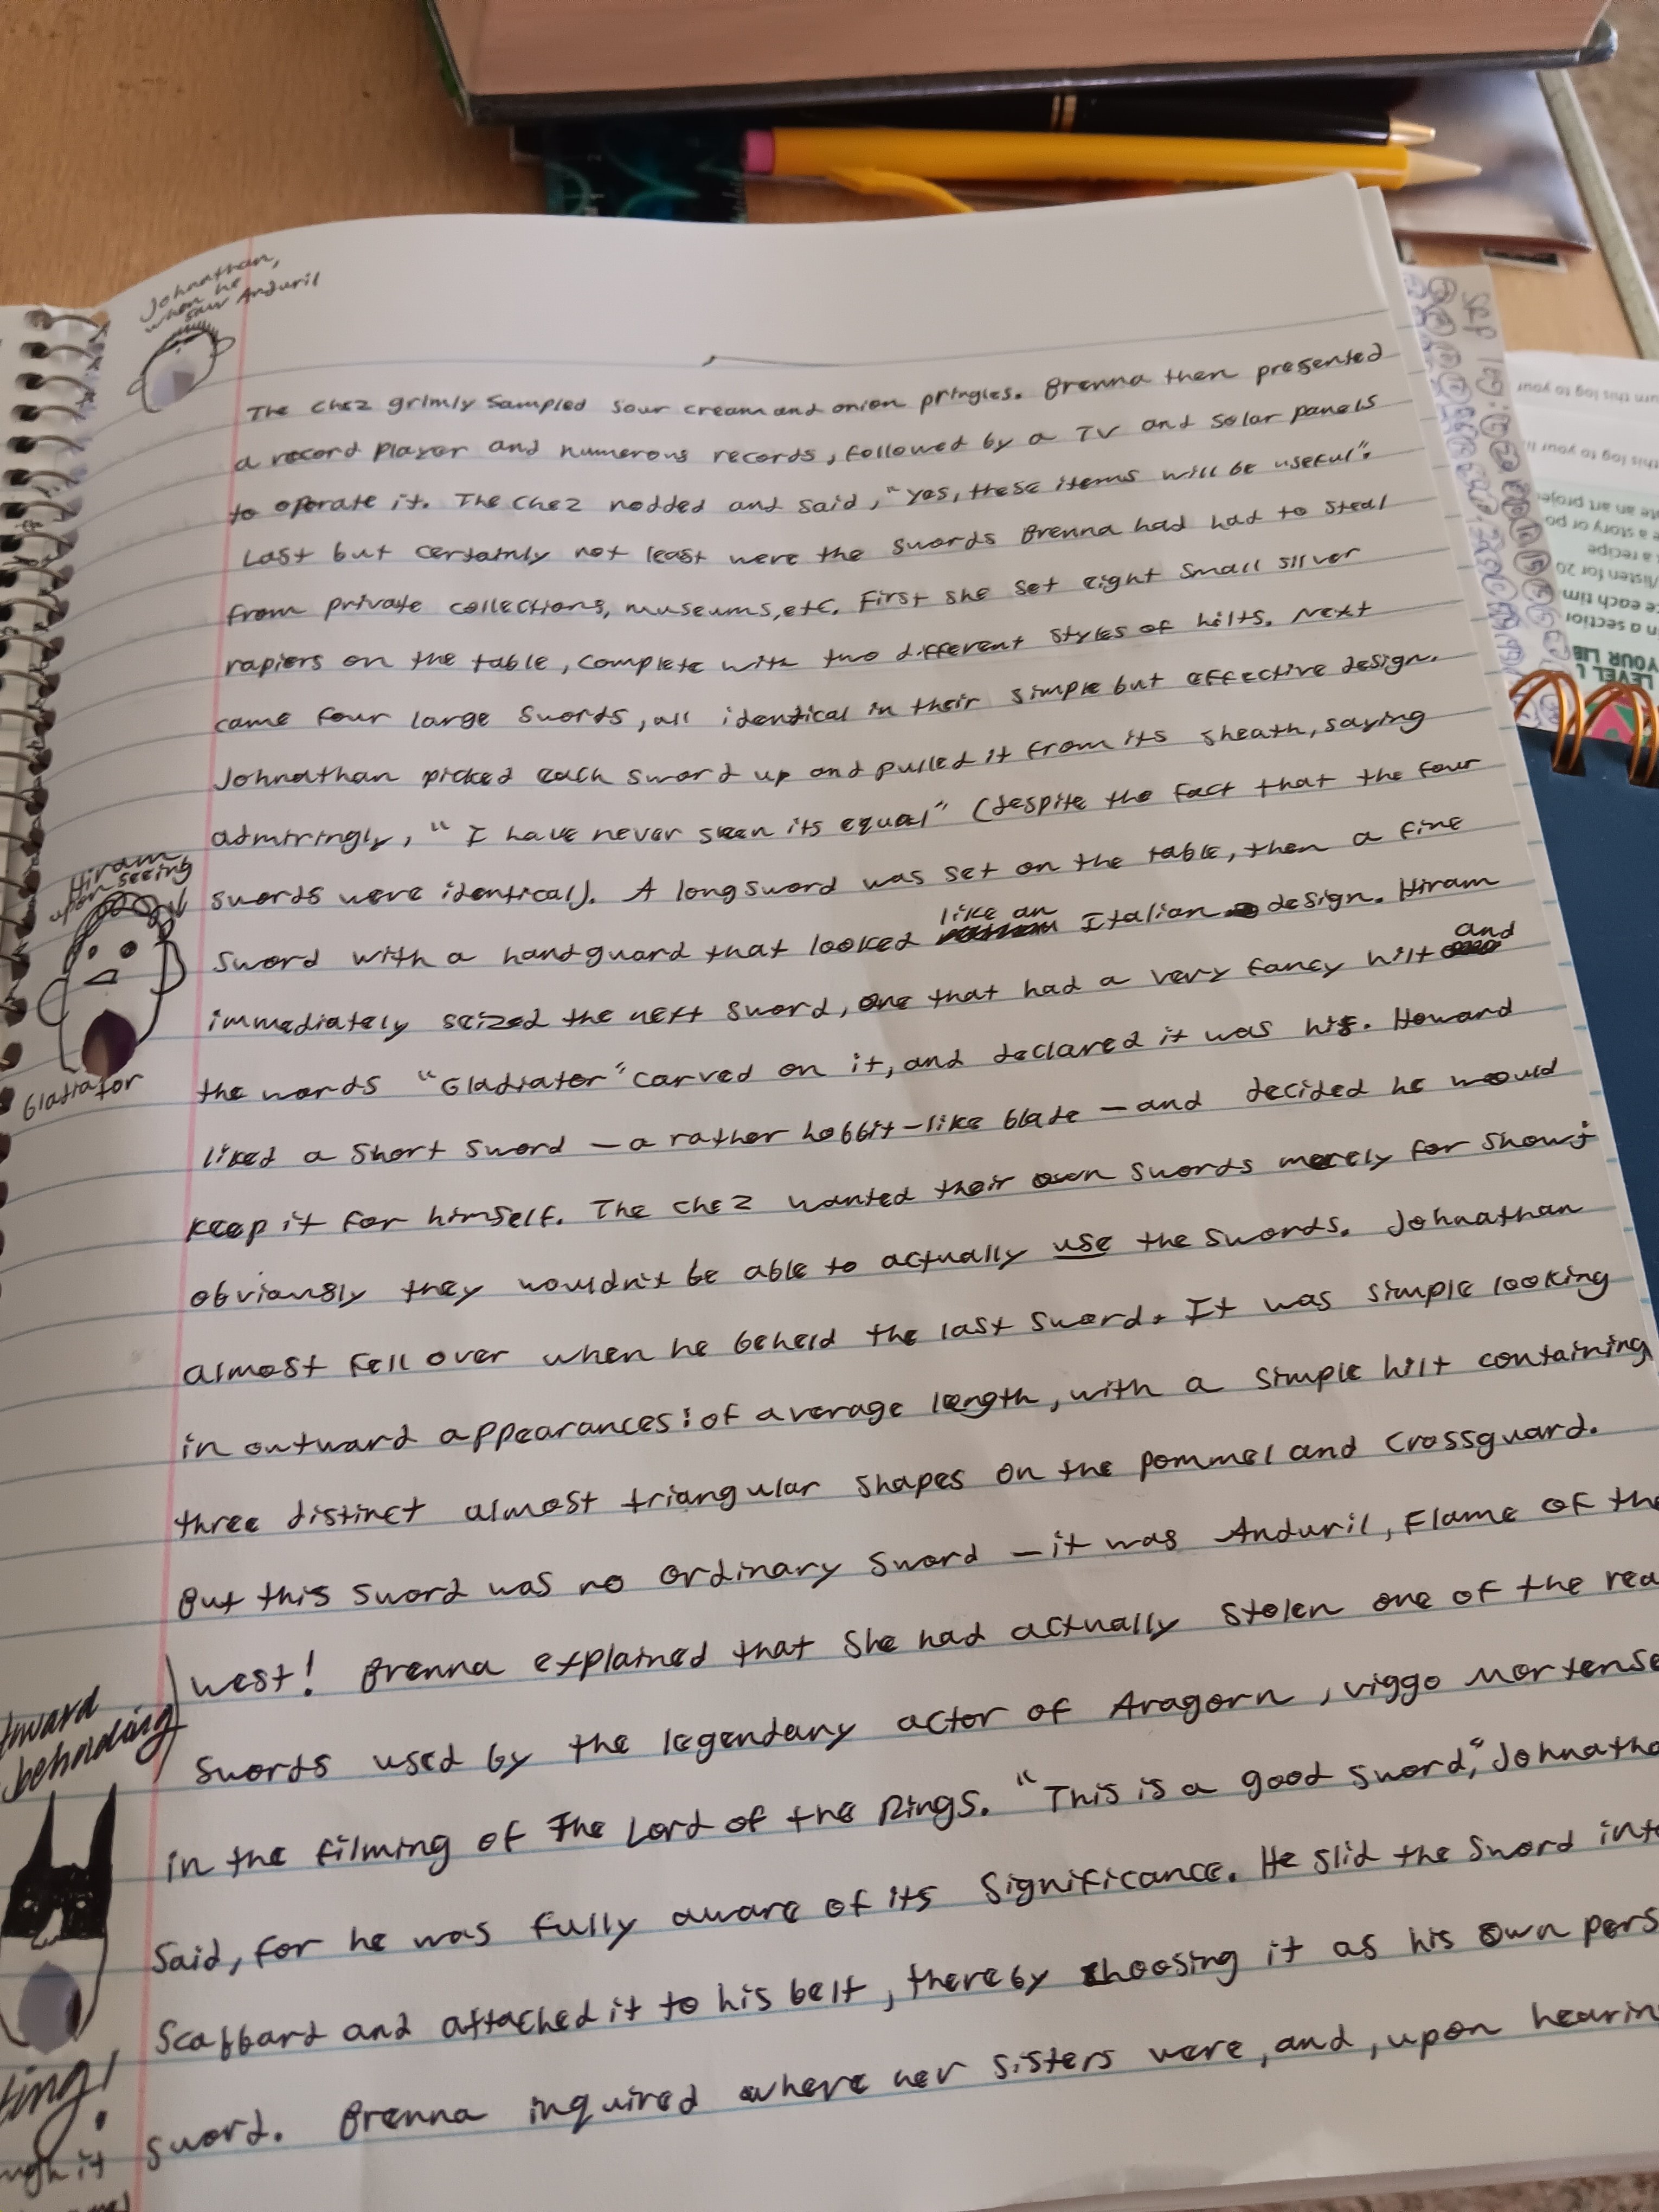 Johnathan,
when he
saw Anduril
The Chez grimly sampled sour cream and onion pringles. Brenna then presented
a record player and numerous records, followed by a TV and solar panels
to operate it. The Chez nodded and said, "Yes, these items will be useful".
Last but certainly not least were the swords Brenna had had to steal
from private collections, museums, etc. First she set eight small silver
rapiers on the table, complete with two different styles of hilts. Next
came four large swords, all identical in their simple but effective design.
Johnathan picked each sword up and pulled it from its sheath, saying
admiringly, "I have never seen its equal" (despite the fact that the four
swords were identical). A longsword was set on the table, then a fine
sword with a handguard that looked like an Italian design. Hiram
immediately seized the next sword, one that had a very fancy hilt and
the words "Gladiator" carved on it, and declared it was his. Howard
liked a short sword – a rather hobbit-like blade – and decided he would
keep it for himself. The Chez wanted their own swords merely for show;
obviously they wouldn't be able to actually use the swords. Johnathan
almost fell over when he beheld the last sword. It was simple looking
in outward appearances: of average length, with a simple hilt containing
three distinct almost triangular shapes on the pommel and crossguard.
But this sword was no ordinary sword – it was Anduril, Flame of the
West! Brenna explained that she had actually stolen one of the
swords used by the legendary actor of Aragorn, Viggo Mortense
in the filming of The Lord of the Rings. "This is a good sword," Johnatha
said, for he was fully aware of its significance. He slid the sword int
scabbard and attached it to his belt, thereby choosing it as his own pers
sword. Brenna inquired where her sisters were, and, upon hearin
Hiram,
upon seeing
Gladiator
beholding
ting!
it
urn this log to your
this log to your li
te an art projec
e a story or po
a recipe
/listen for 20
ce each tim
n a section
YOUR LIB
LEVEL